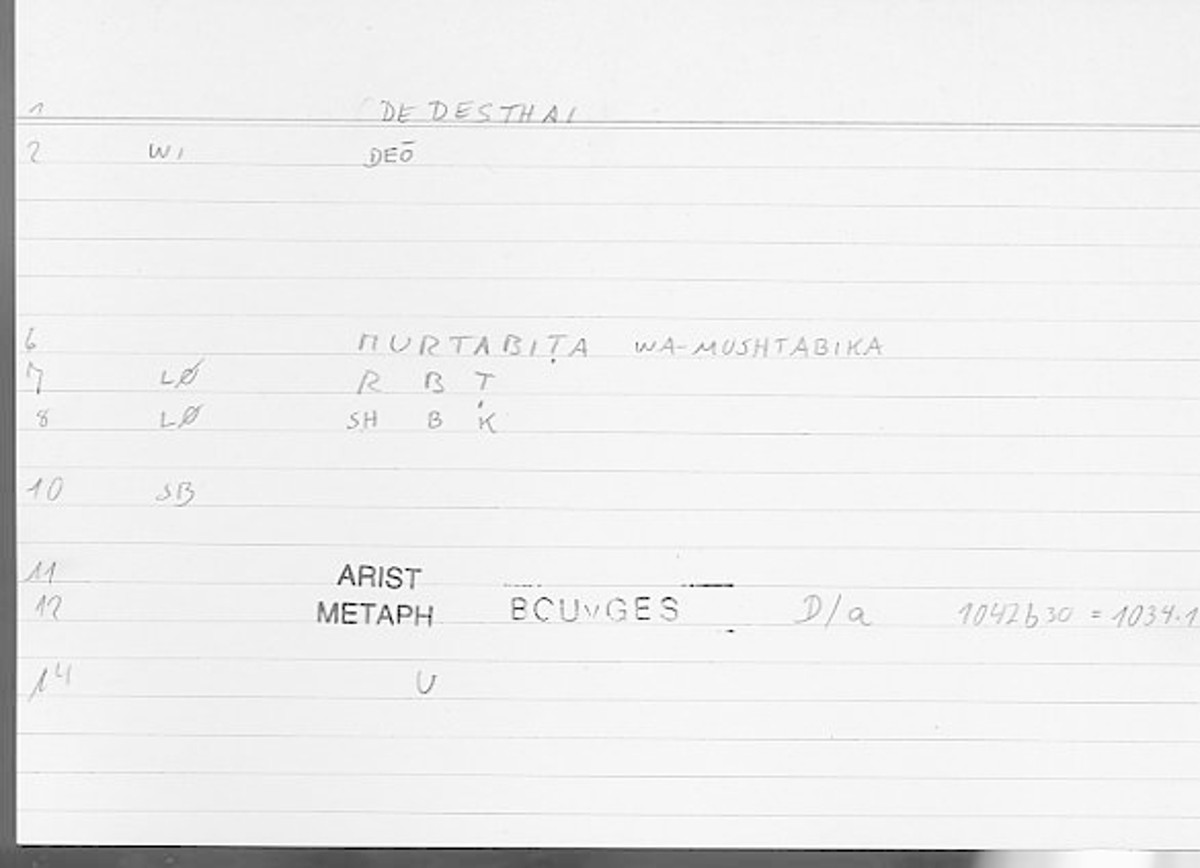 1 DE DESTHAI
2 WI DEŌ
6 MURTABIṬA WA-MUSHTABIKA
7 LØ R B Ṭ
8 LØ SH B K
10 SB
11 ARIST
12 METAPH BOUYGES D/a 1042b30 = 1034.1
14 U